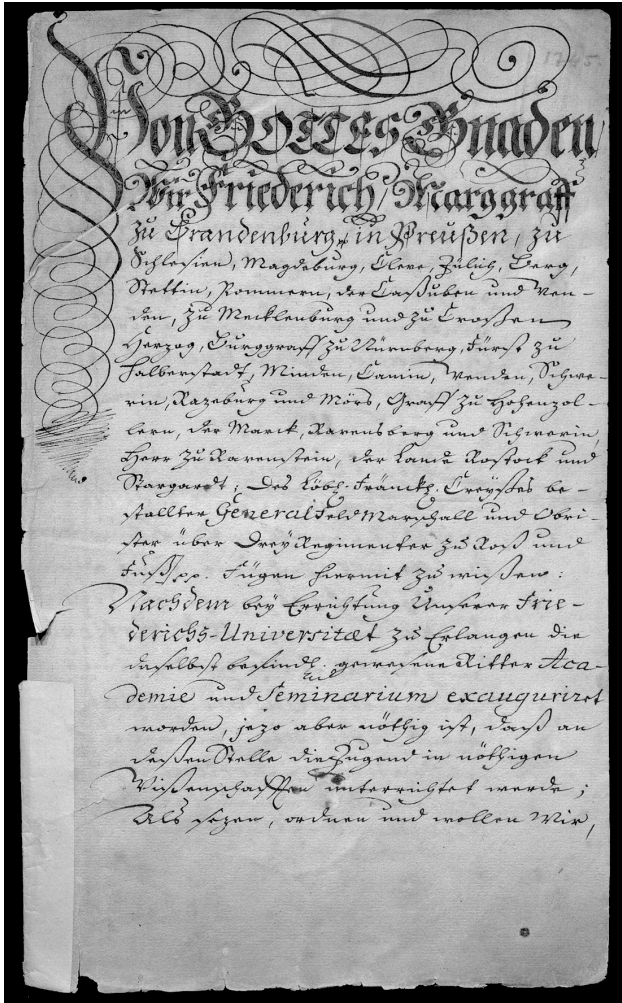 1745.
Von GOTTES Gnaden,
Wir Friederich, Marggraff
zu Brandenburg, in Preußen, zu
Schlesien, Magdeburg, Cleve, Jülich, Berg,
Stettin, Pommern, der Caßuben und Wen-
den, zu Mecklenburg und zu Croßen
Herzog, Burggraff zu Nürnberg, Fürst zu
Halberstadt, Minden, Camin, Wenden, Schwe-
rin, Razeburg und Mörs, Graff zu Hohenzol-
lern, der Marck, Ravensberg und Schwerin,
Herr zu Ravenstein, der Lande Rostock und
Stargardt; Des Löbl. Fränck. Creyßes be-
stallter General Feld Marschall und Obri-
ster über Drey Regimenter zu Roß und
Fuß, pp. Fügen hiermit zu wißen:
Nachdem bey Errichtung Unserer Frie-
derichs-Universitæt zu Erlangen die
daselbst befindl. gewesene Ritter Aca-
demie und Seminarium exauguriret
worden, jezo aber nöthig ist, daß an
deßen Stelle die Jugend in nöthigen
Wißenschafften unterrichtet werde;
Als sezen, ordnen und wollen Wir,